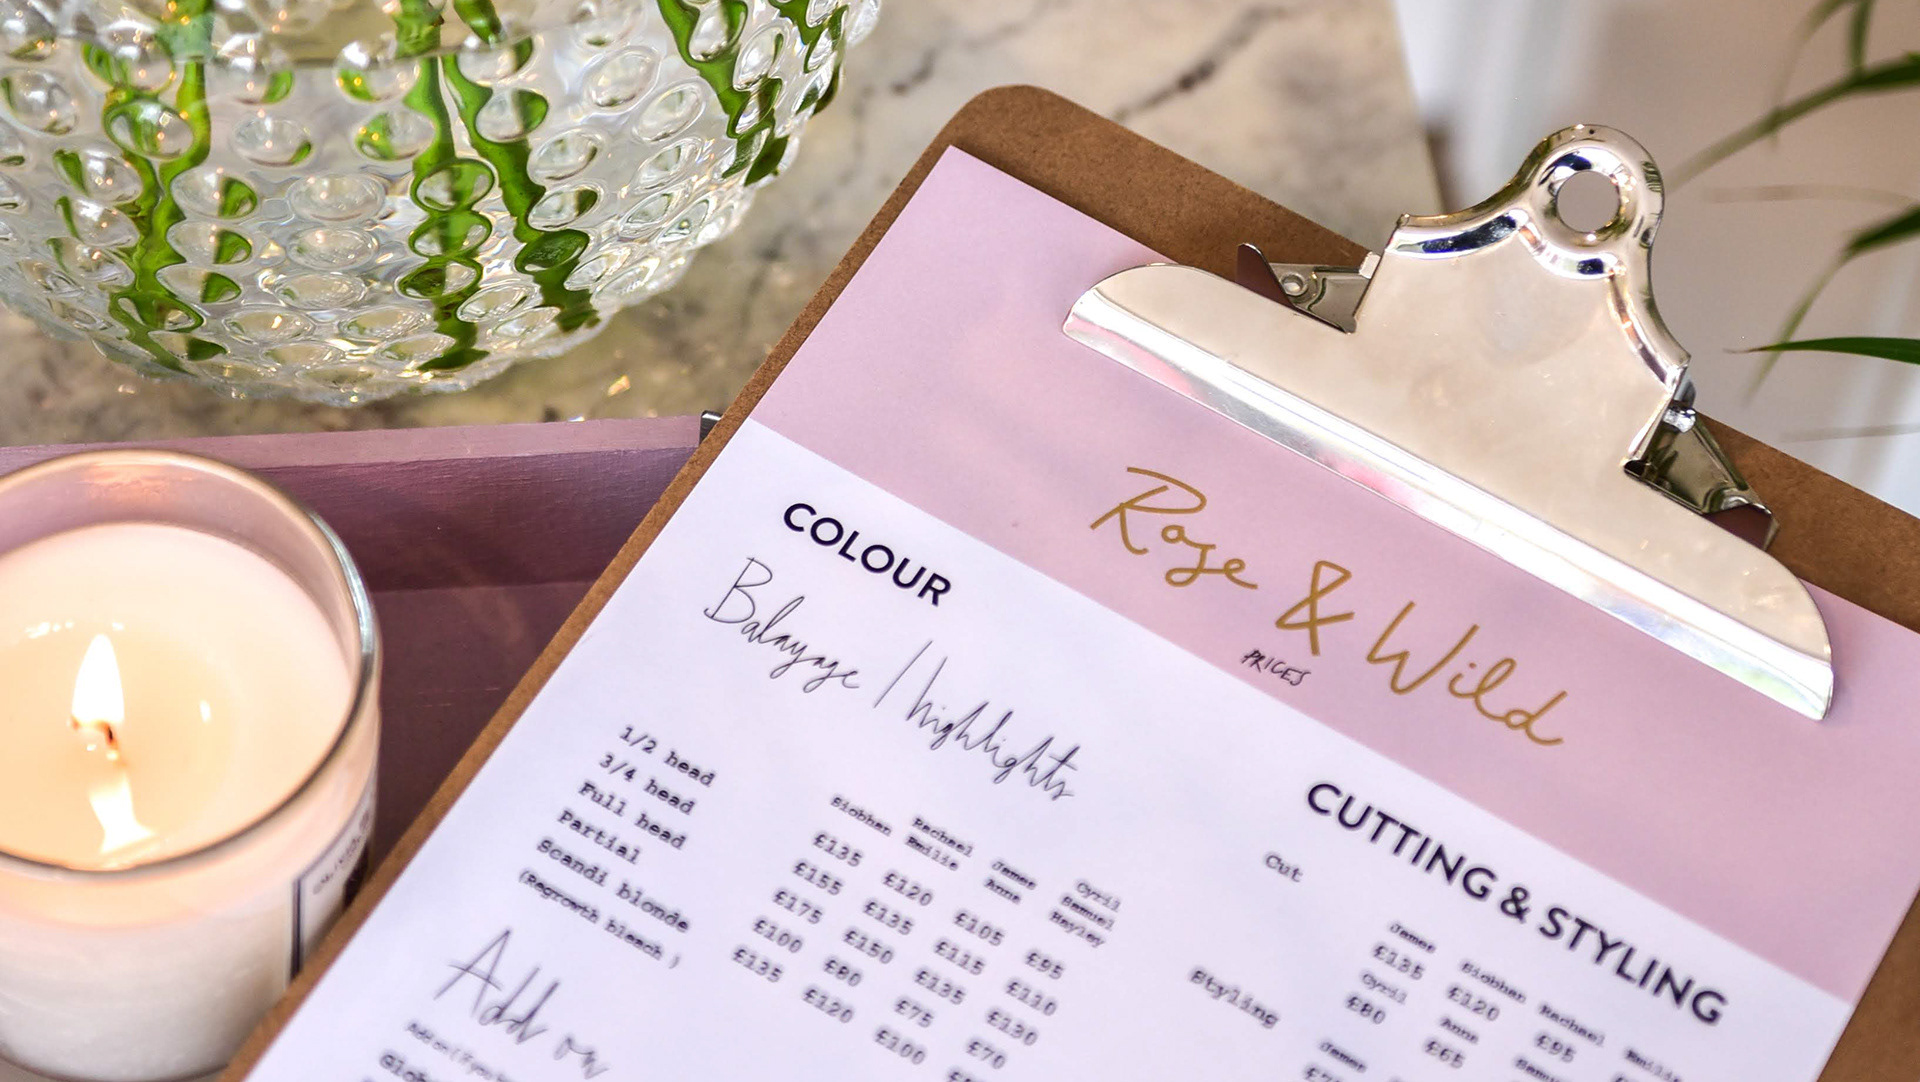 Rose & Wild
PRICES
COLOUR
Balayage / highlights
Siobhan Rachael Emilie James Anna Cyril Samuel Hayley
1/2 head £135 £120 £105 £95
3/4 head £155 £135 £115 £110
Full head £175 £150 £135 £130
Partial £100 £80 £75 £70
Scandi blonde £135 £120 £100
(Regrowth bleach )
Add on
CUTTING & STYLING
Cut
James Siobhan Rachael
£135 £120 £95
Cyril Anna
£80 £65
Styling
James